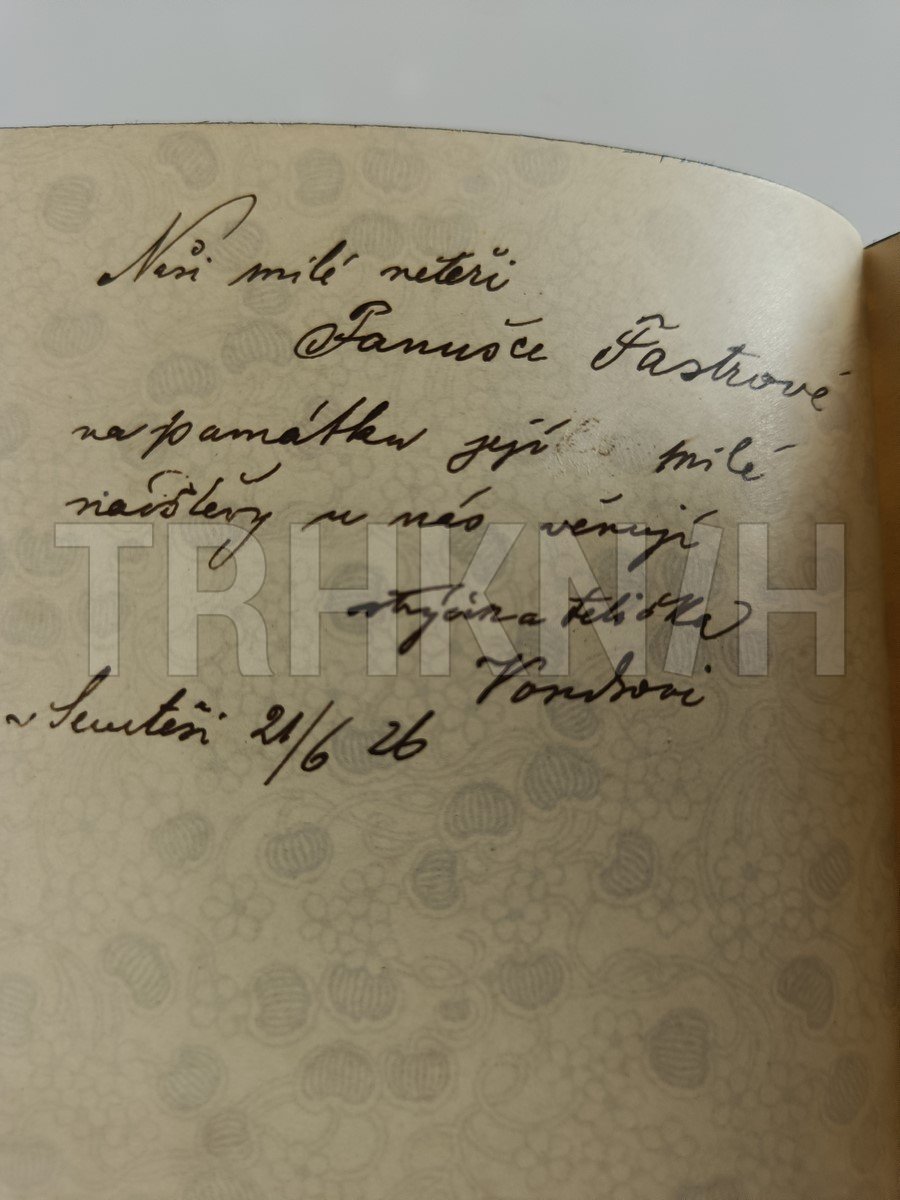 Naši milé neteři
Fanušce Fastrové
na památku její milé
návštěvy u nás věnují
strýček a tetička
Vondrovi
v Semtěši 21/6 26
TRHKNIH